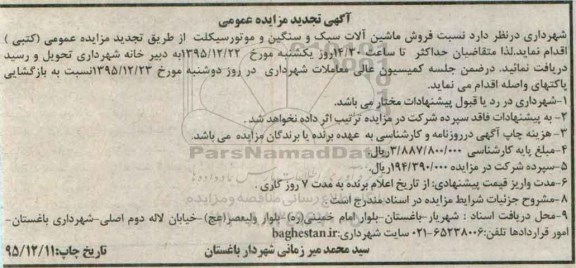 آگهی تجدید مزایده عمومی
شهرداری درنظر دارد نسبت فروش ماشین آلات سبک و سنگین و موتورسیکلت از طریق تجدید مزایده عمومی (کتبی )
اقدام نماید.لذا متقاضیان حداکثر تا ساعت ۱۴/۳۰روز یکشنبه مورخ ۱۳۹۵/۱۲/۲۲به دبیر خانه شهرداری تحویل و رسید
دریافت نمائید. درضمن جلسه کمیسیون عالی معاملات شهرداری در روز دوشنبه مورخ ۱۳۹۵/۱۲/۲۳نسبت به بازگشایی
پاکتهای واصله اقدام می نماید.
۱-شهرداری در رد یا قبول پیشنهادات مختار می باشد.
۲- به پیشنهادات فاقد سپرده شرکت در مزایده ترتیب اثر داده نخواهد شد .
۳-هزینه چاپ آگهی درروزنامه و کارشناسی به عهده برنده یا برندگان مزایده می باشد.
۴-مبلغ پایه کارشناسی ۳/۸۸۷/۸۰۰/۰۰۰ریال.
۵-سپرده شرکت در مزایده ۱۹۴/۳۹۰/۰۰۰ریال.
۶-مدت واریز قیمت پیشنهادی: از تاریخ اعلام برنده به مدت ۷ روز کاری .
۸-مشروح جزئیات شرایط مزایده در اسناد مندرج است .
۹-محل دریافت اسناد : شهریار-باغستان-بلوار امام خمینی(ره) بلوار ولیعصر(عج)-خیابان لاله دوم اصلی-شهرداری باغستان-
امور قراردادها تلفن:۶۵۲۳۸۰۰۶-۰۲۱ سایت شهرداری:baghestan.ir
سید محمد میر زمانی شهردار باغستان
تاریخ چاپ:۹۵/۱۲/۱۱
ParsNamadData